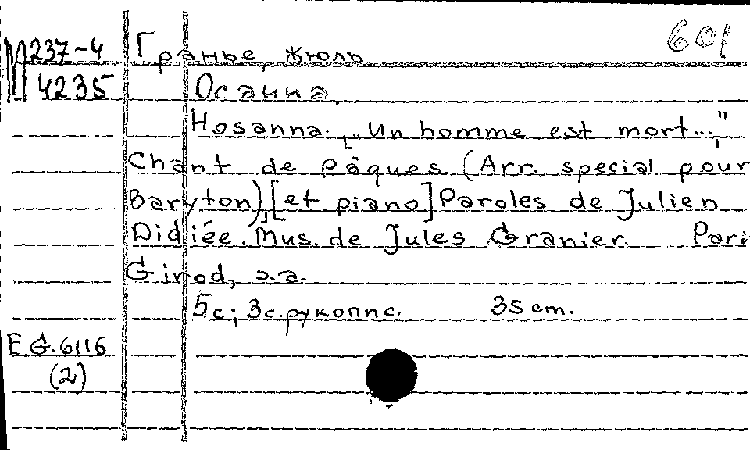 М 237-4 Гранье, Жюль 601
4235 Осанна.
Hosanna. „Un homme est mort..."
Chant de Pâques (Arr. special pour
Baryton), [et piano] Paroles de Julien
Didiée. Mus. de Jules Granier. Pari
Girod, s.a.
5с; 3с. рукопис. 35 cm.
E.G. 6116
(2)